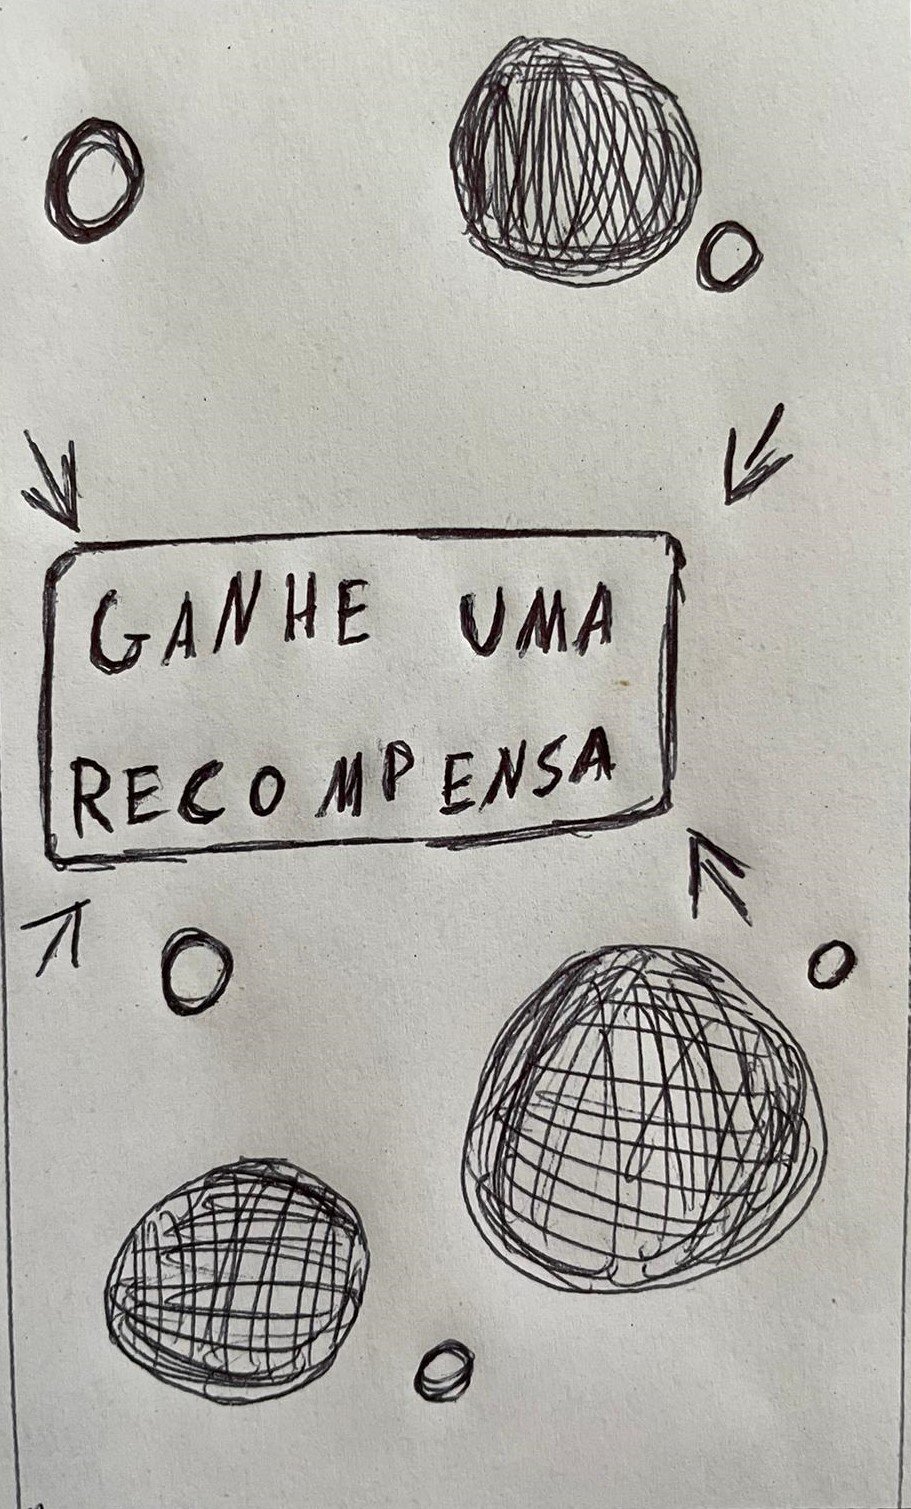 GANHE UMA
RECOMPENSA